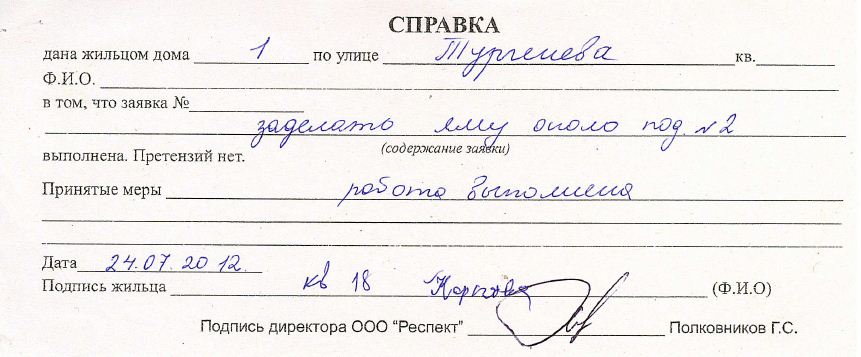 СПРАВКА
дана жильцом дома 1 по улице Тургенева кв.
Ф.И.О.
в том, что заявка №
заделать яму около под. №2
(содержание заявки)
выполнена. Претензий нет.
Принятые меры работа выполнена
Дата 24.07.2012.
Подпись жильца кв 18 (Ф.И.О)
Подпись директора ООО "Респект" Полковников Г.С.